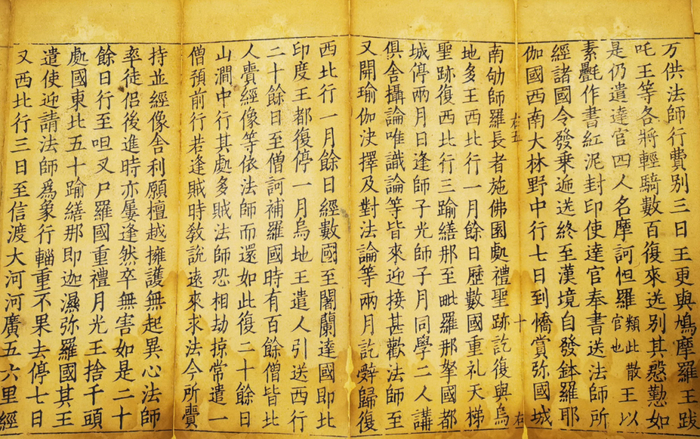 万供法師行費別三日王更與鳩摩羅王跋
吒王等各將輕騎數百復來送別其慇懃如
是仍遣達官四人名摩訶怛羅類此散官也王以
素㲲作書紅泥封印使達官奉書送法師所
經諸國令發乘遞送終至漢境自發鉢羅耶
伽國西南大林野中行七日到憍賞弥國城
十
南劬師羅長者施佛園處禮聖跡訖復與烏
地多王西北行一月餘日歷數國重礼天梯
聖跡復西北行三踰繕那至毗羅那拏國都
城停兩月日逢師子光師子月同學二人講
俱舍攝論唯識論等皆來迎接甚歡法師至
又開瑜伽決擇及對法論等兩月訖辭歸復
西北行一月餘日經數國至闍蘭達國即北
印度王都復停一月烏地王遣人引送西行
二十餘日至僧訶補羅國時有百餘僧皆北
人賷經像等依法師而還如此復二十餘日
山澗中行其處多賊法師恐相劫掠常遣一
僧預前行若逢賊時教說遠來求法今所賷
持並經像舍利願檀越擁護無起異心法師
率徒侶後進時亦屢逢然卒無害如是二十
餘日行至呾叉尸羅國重禮月光王捨千頭
處國東北五十踰繕那即迦濕弥羅國其王
遣使迎請法師爲象行輜重不果去停七日
又西北行三日至信渡大河河廣五六里經